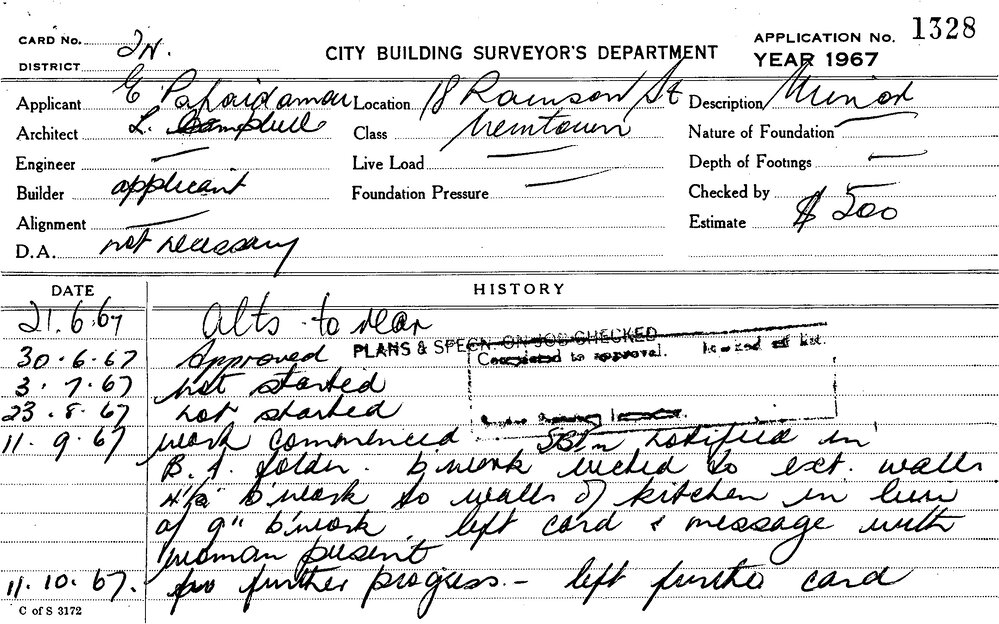 CARD No. 2N.
DISTRICT
CITY BUILDING SURVEYOR'S DEPARTMENT
APPLICATION No. 1328
YEAR 1967
Applicant E
Location 18 St
Description Minor
Architect L. Campbell
Class Newtown
Nature of Foundation —
Engineer —
Live Load —
Depth of Footings —
Builder applicant
Foundation Pressure —
Checked by
Alignment —
Estimate $ 500
D.A. not necessary
DATE
HISTORY
21.6.67 Alts to rear
30.6.67 Approved PLANS & SPECN. ON JOB CHECKED
Completed to approval.
3.7.67 not started
23.8.67 not started
11.9.67 work commenced notified in
B.A. folder. b'work to ext. walls
4½" b'work to walls of kitchen in lieu
of 9" b'work. left card & message with
woman present
11.10.67. no further progress. – left further card
C of S 3172